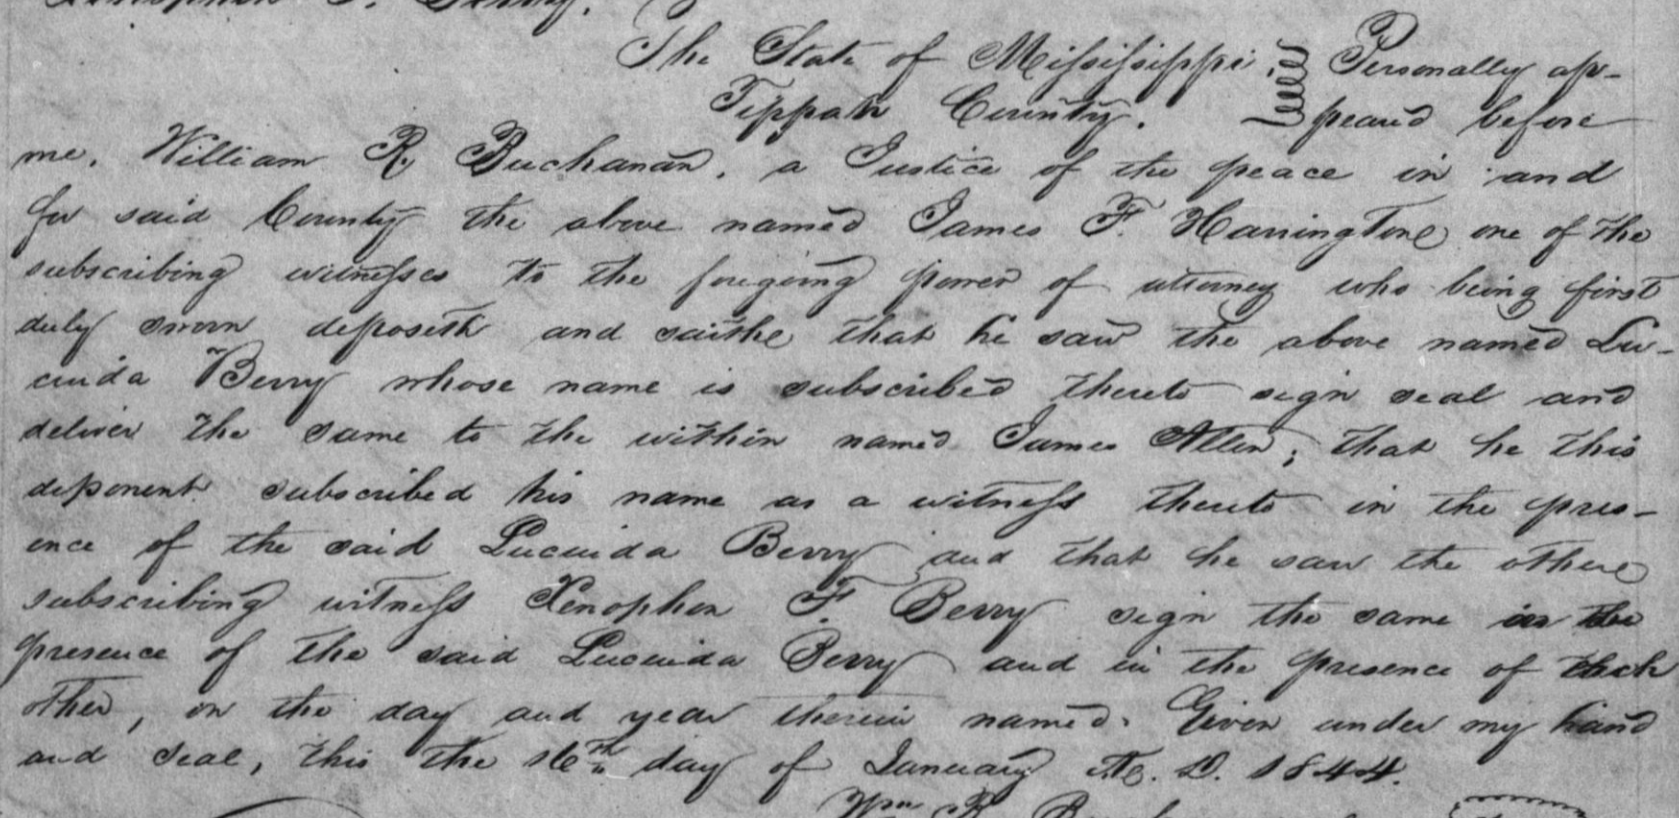 Xenophon F. Berry.
The State of Mississippi Personally ap-
Tippah County. peard before
me, William R. Buchanan, a Justice of the peace in and
for said County the above named James F. Harrington one of the
subscribing witnesses to the foregoing power of attorney who being first
duly sworn deposeth and saithe that he saw the above named Lu-
cinda Berry whose name is subscribed thereto sign seal and
deliver the same to the within named James Allen; that he this
deponent subscribed his name as a witness thereto in the pres-
ence of the said Lucinda Berry and that he saw the other
subscribing witness Xenophon F. Berry sign the same in the
presence of the said Lucinda Berry and in the presence of each
other, on the day and year therein named. Given under my hand
and seal, this the 16th day of January A. D. 1844.
Wm R. Buchanan